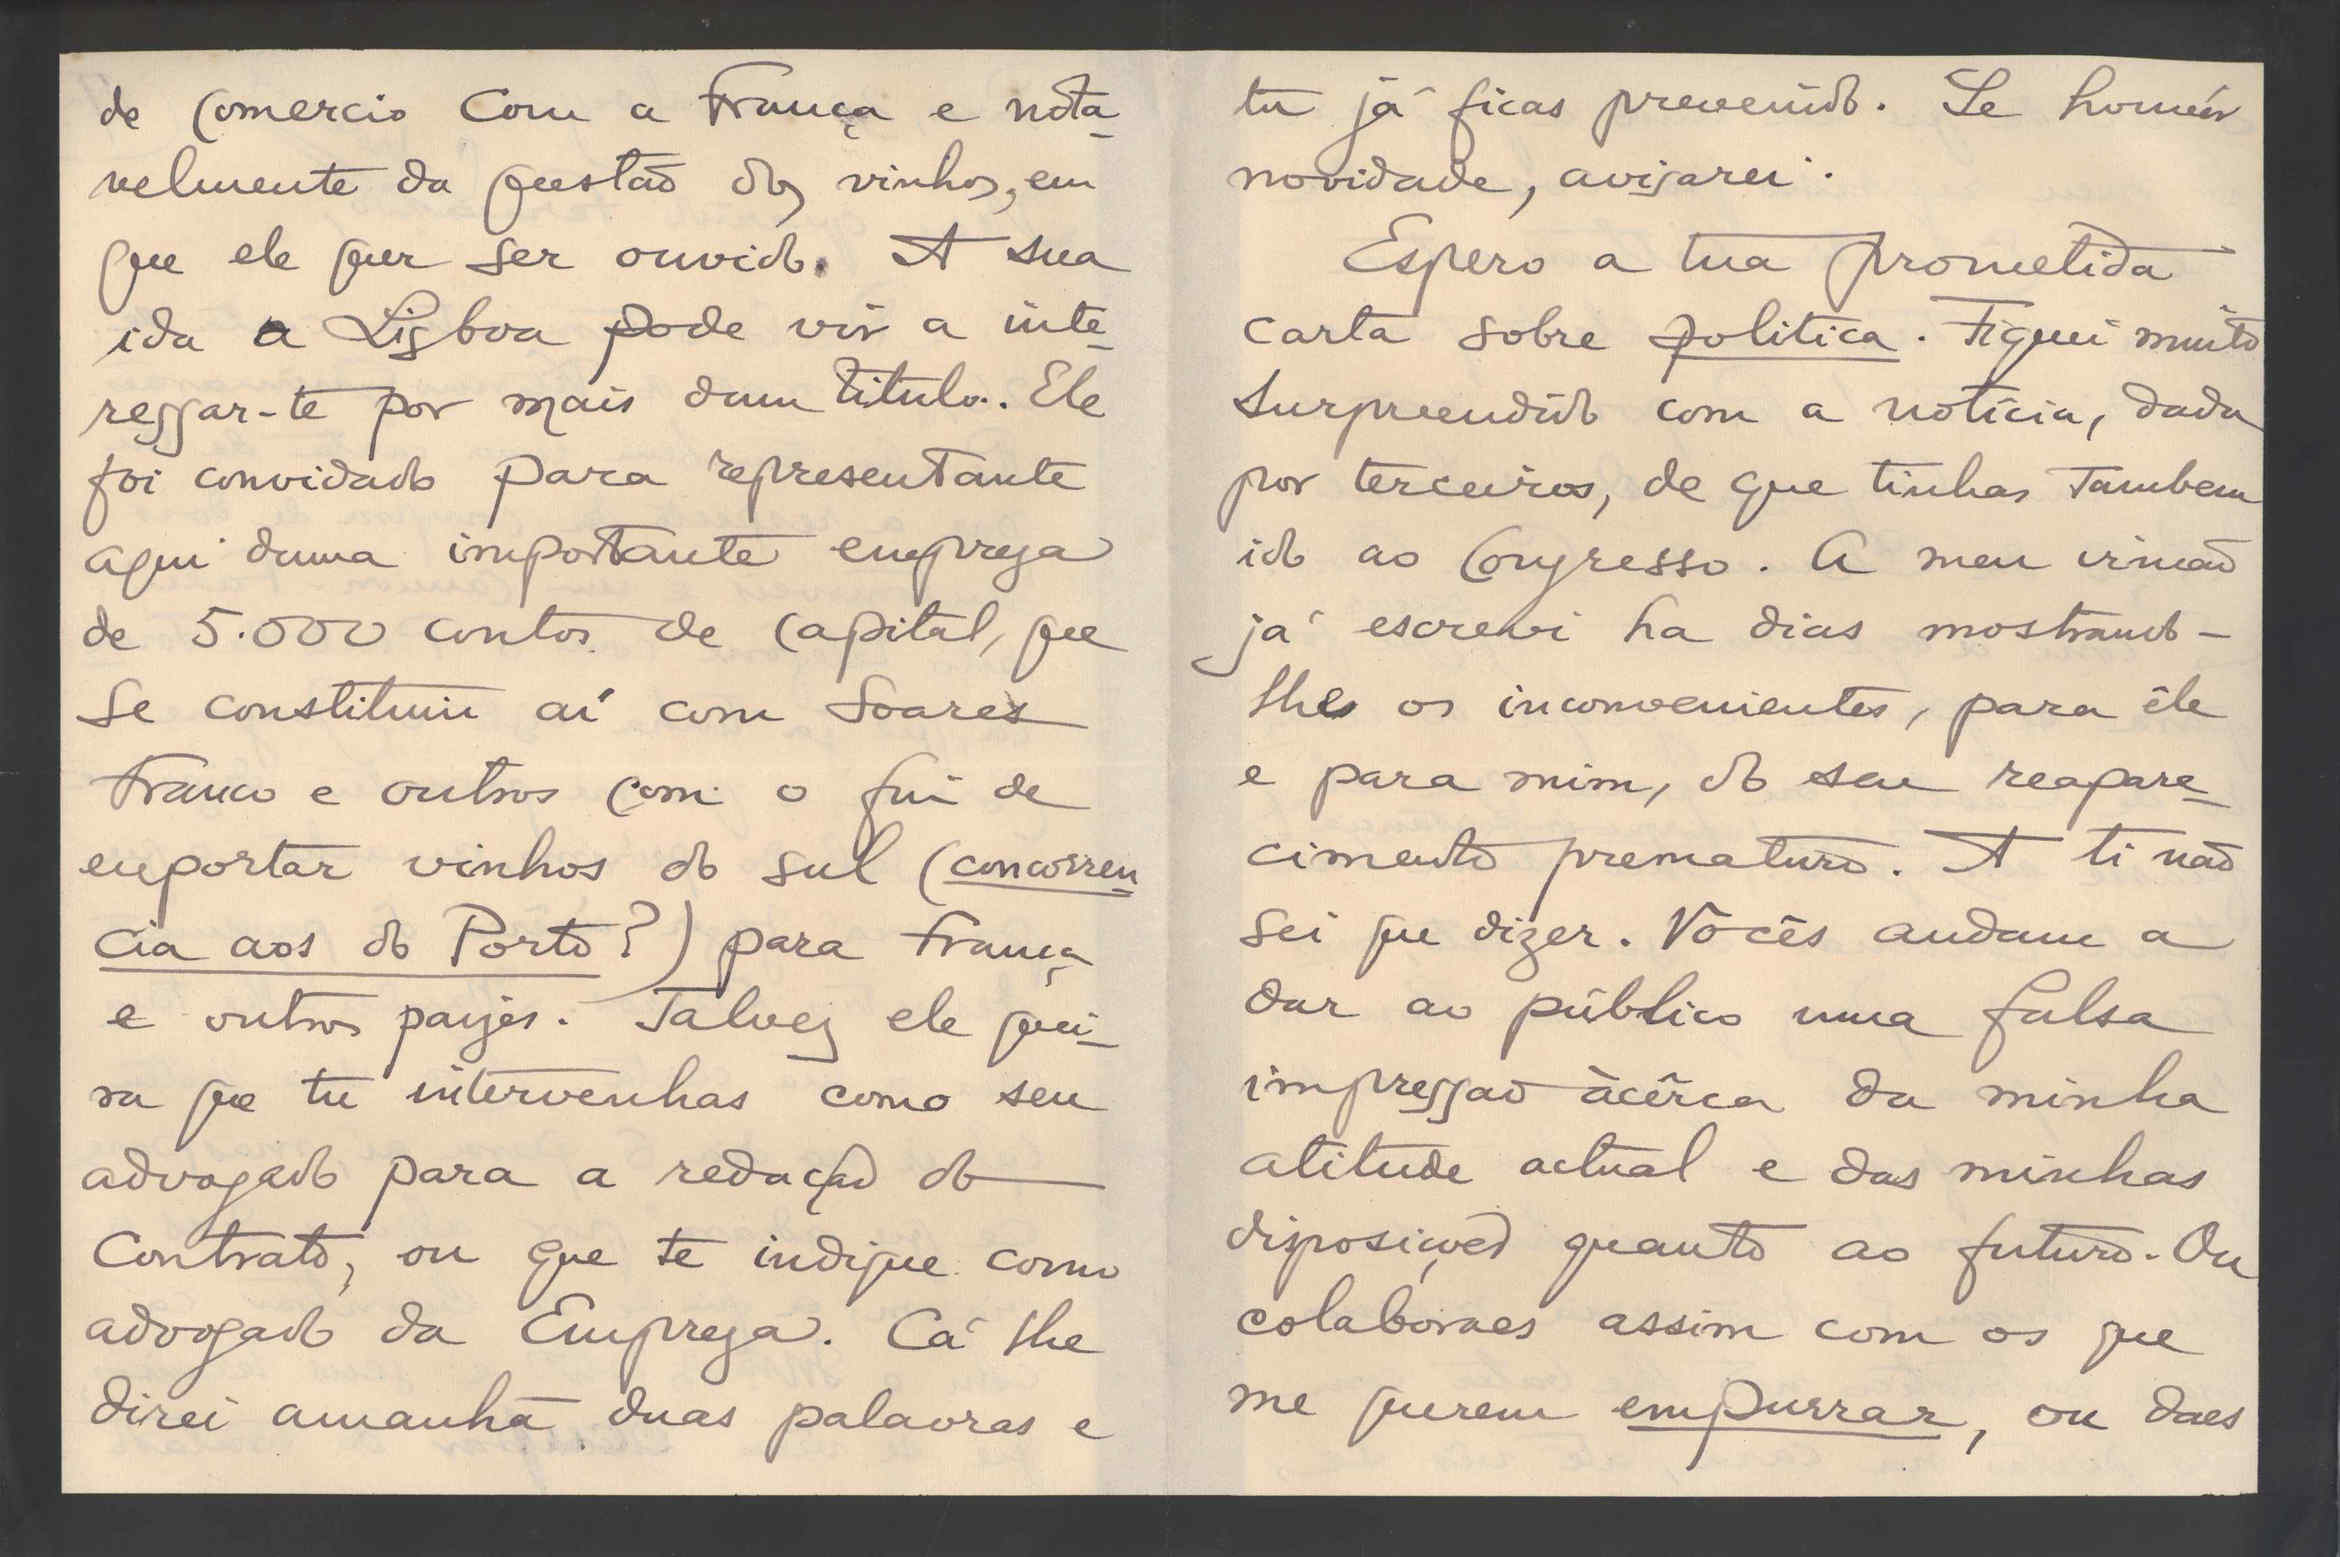 de Comercio com a França e nota-
velmente da questão dos vinhos, em
que ele quer ser ouvido. A sua
ida a Lisboa pode vir a inte-
ressar-te por mais dum titulo. Ele
foi convidado para representante
aqui duma importante empresa
de 5.000 contos de capital, que
se constituiu aí com Soares
Franco e outros com o fim de
exportar vinhos do sul (concorren
cia aos do Porto?) para França
e outros paises. Talvez ele quei-
ra que tu intervenhas como seu
advogado para a redação do
contrato, ou que te indique como
advogado da Empresa. Cá lhe
direi amanhã duas palavras e
tu já ficas prevenido. Se houver
novidade, avisarei.
Espero a tua prometida
carta sobre politica. Fiquei muito
surpreendido com a notícia, dada
por terceiros, de que tinhas tambem
ido ao Congresso. A meu irmão
já escrevi ha dias mostrando-
lhe os inconvenientes, para êle
e para mim, do seu reapare-
cimento prematuro. A ti não
sei que dizer. Vocês andam a
dar ao público uma falsa
impressão àcêrca da minha
atitude actual e das minhas
disposições quanto ao futuro. Ou
colaboraes assim com os que
me querem empurrar, ou daes